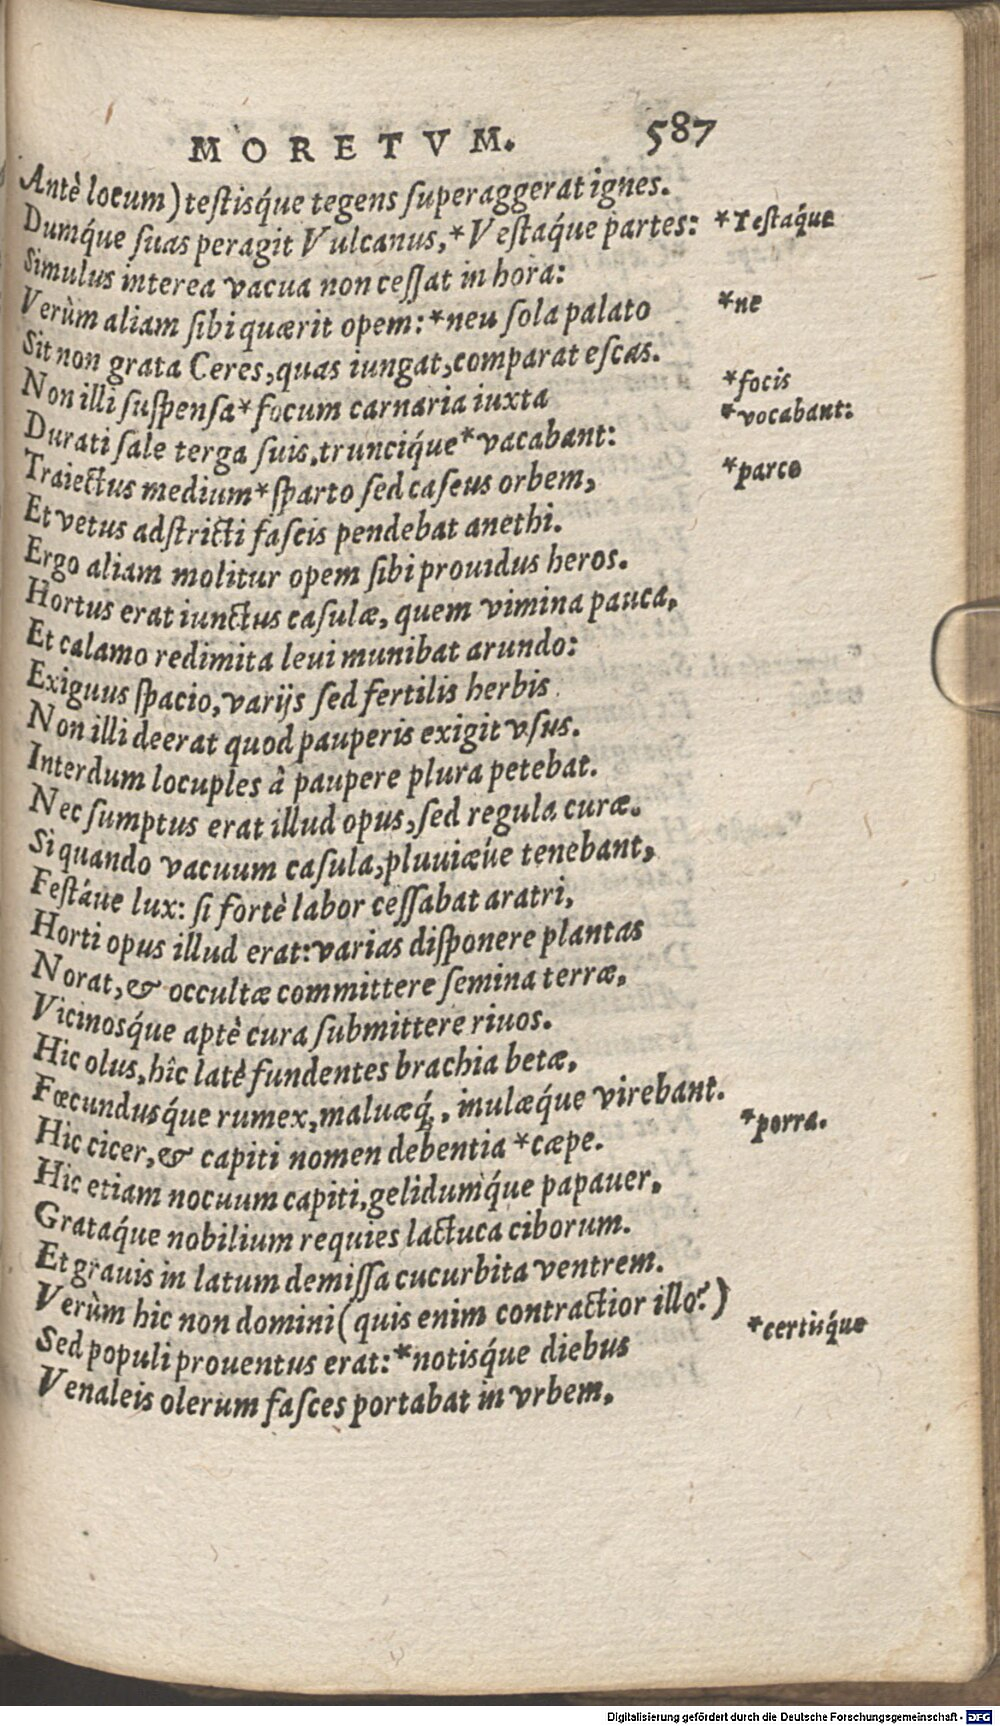 MORETVM. 587
Antè locum) teſtisq́ue tegens ſuperaggerat ignes.
Dumq́ue ſuas peragit Vulcanus,*Veſtaq́ue partes: *Teſtaq́ue
Simulus interea vacua non ceſſat in hora:
Verùm aliam ſibi quærit opem:*neu ſola palato *ne
Sit non grata Ceres,quas iungat,comparat eſcas.
Non illi ſuſpenſa*focum carnaria iuxta *focis
Durati ſale terga ſuis,trunciq́ue*vacabant: *vocabant:
Traiectus medium*ſparto ſed caſeus orbem, *parco
Et vetus adſtricti faſcis pendebat anethi.
Ergo aliam molitur opem ſibi prouidus heros.
Hortus erat iunctus caſulæ, quem vimina pauca,
Et calamo redimita leui munibat arundo:
Exiguus ſpacio,varijs ſed fertilis herbis
Non illi deerat quod pauperis exigit vſus.
Interdum locuples à paupere plura petebat.
Nec ſumptus erat illud opus,ſed regula curæ.
Si quando vacuum caſula,pluuiæúe tenebant,
Feſtáue lux: ſi fortè labor ceſſabat aratri,
Horti opus illud erat:varias diſponere plantas
Norat,& occultæ committere ſemina terræ,
Vicinosq́ue aptè cura ſubmittere riuos.
Hic olus,hîc latè fundentes brachia betæ,
Fœcundusq́ue rumex,maluæq́;, inulæq́ue virebant.
Hic cicer,& capiti nomen debentia *cæpe. *porra.
Hic etiam nocuum capiti,gelidumq́ue papauer,
Grataq́ue nobilium requies lactuca ciborum.
Et grauis in latum demiſſa cucurbita ventrem.
Verùm hic non domini (quis enim contractior illo?)
Sed populi prouentus erat:*notisq́ue diebus *certisq́ue
Venaleis olerum faſces portabat in vrbem,
Digitalisierung gefördert durch die Deutsche Forschungsgemeinschaft - DFG